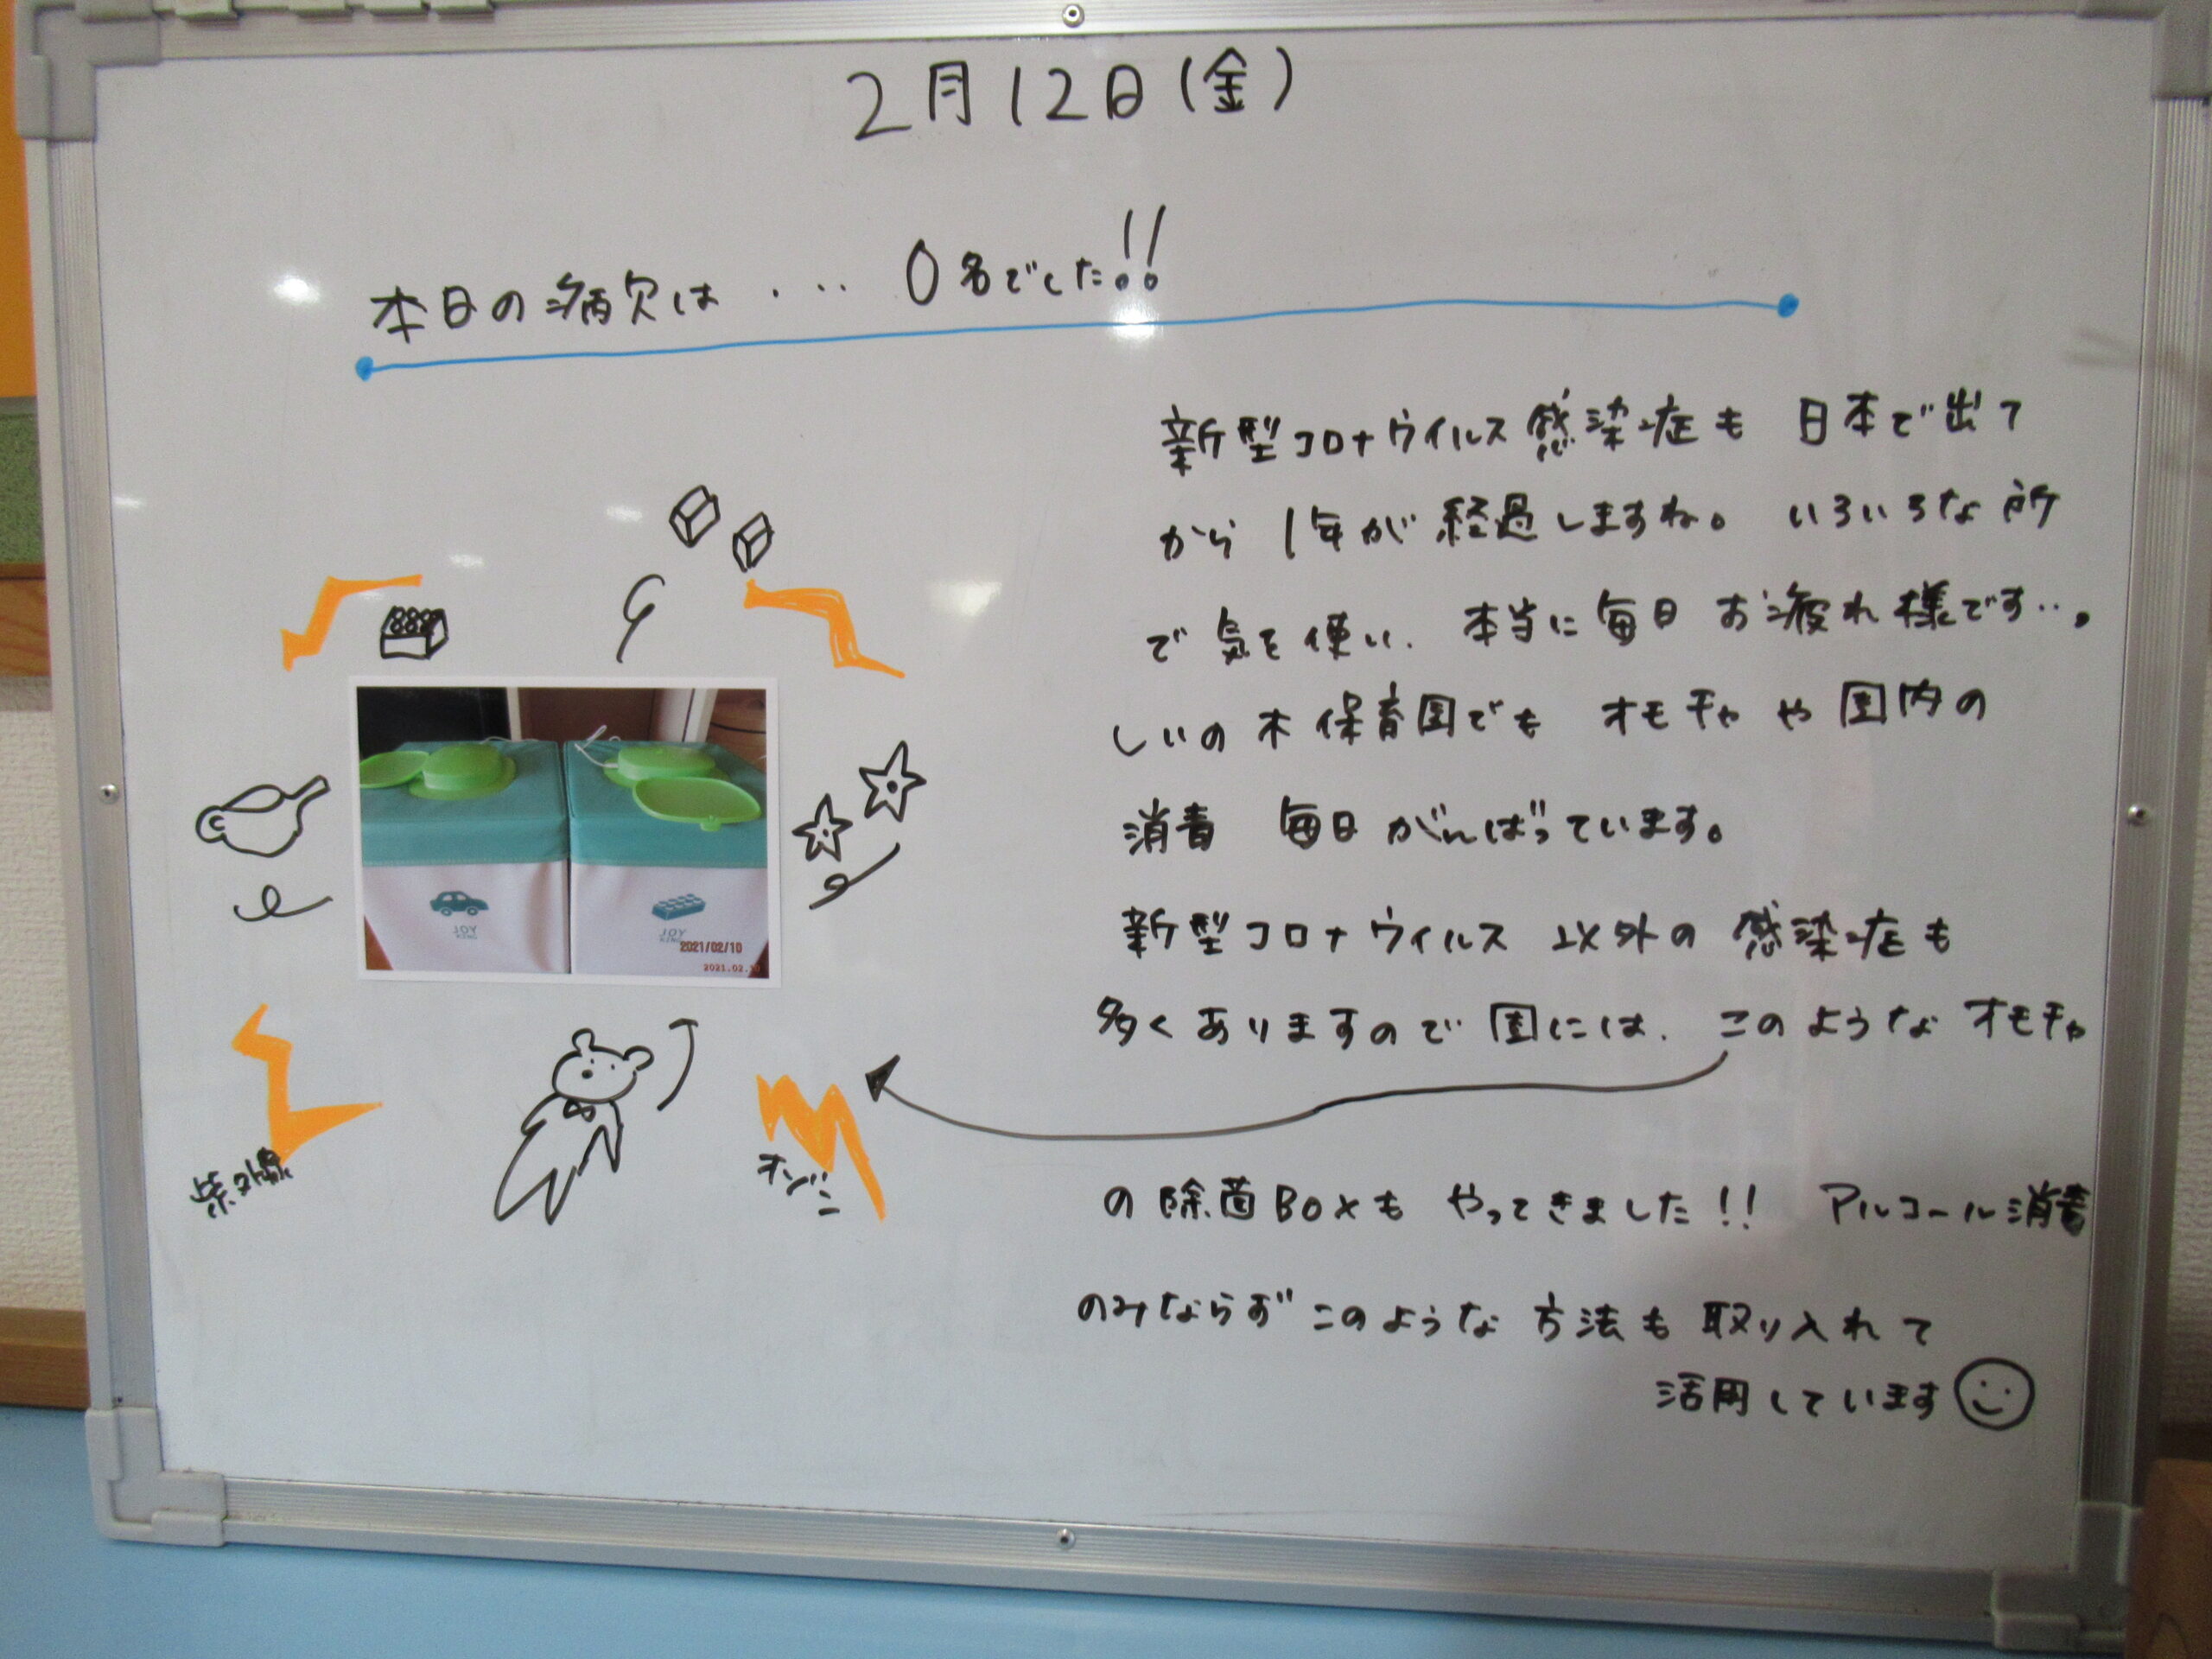 2月12日(金)
本日の病欠は・・・ 0名でした!!
新型コロナウイルス感染症も 日本で出て
から 1年が経過しますね。 いろいろな所
で気を使い、本当に毎日お疲れ様です・・。
しいの木保育園でも オモチャや園内の
消毒 毎日がんばっています。
新型コロナウィルス以外の感染症も
多くありますので園には、このようなオモチャ
の除菌BOXも やってきました!! アルコール消毒
のみならず このような方法も取り入れて
活用しています
紫外線
オゾン
JOY
JOY
2021/02/10